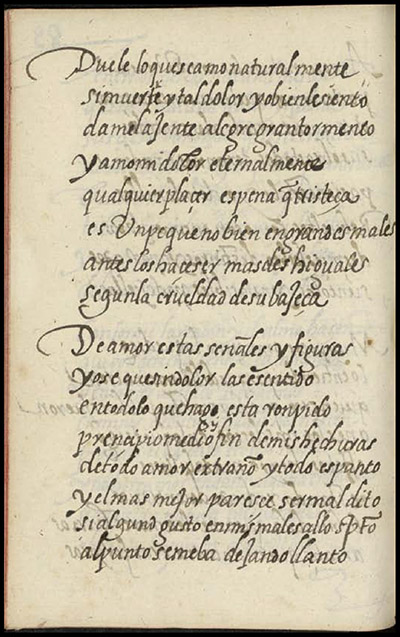 Duele lo que se amo naturalmente
si muerte y tal dolor yo bien le siento
dame la jente alegre gran tormento
y a mi dolor eternalmente
qualquier plaçer es pena q̃ tristeça
es Un pequeno bien en grandes males
antes los hace ser mas deshiguales
segun la crueldad de su bajeça
De amor estas señales y figuras
yo se que sin dolor las e sentido
en todo lo que hago esta ronpido
prencipio medio y fin de mis hechuras
de todo amor extraño y todo espanto
y el mas mejor paresce ser maldito
si algund gusto en mis males allo
al punto se me ba dejando llanto